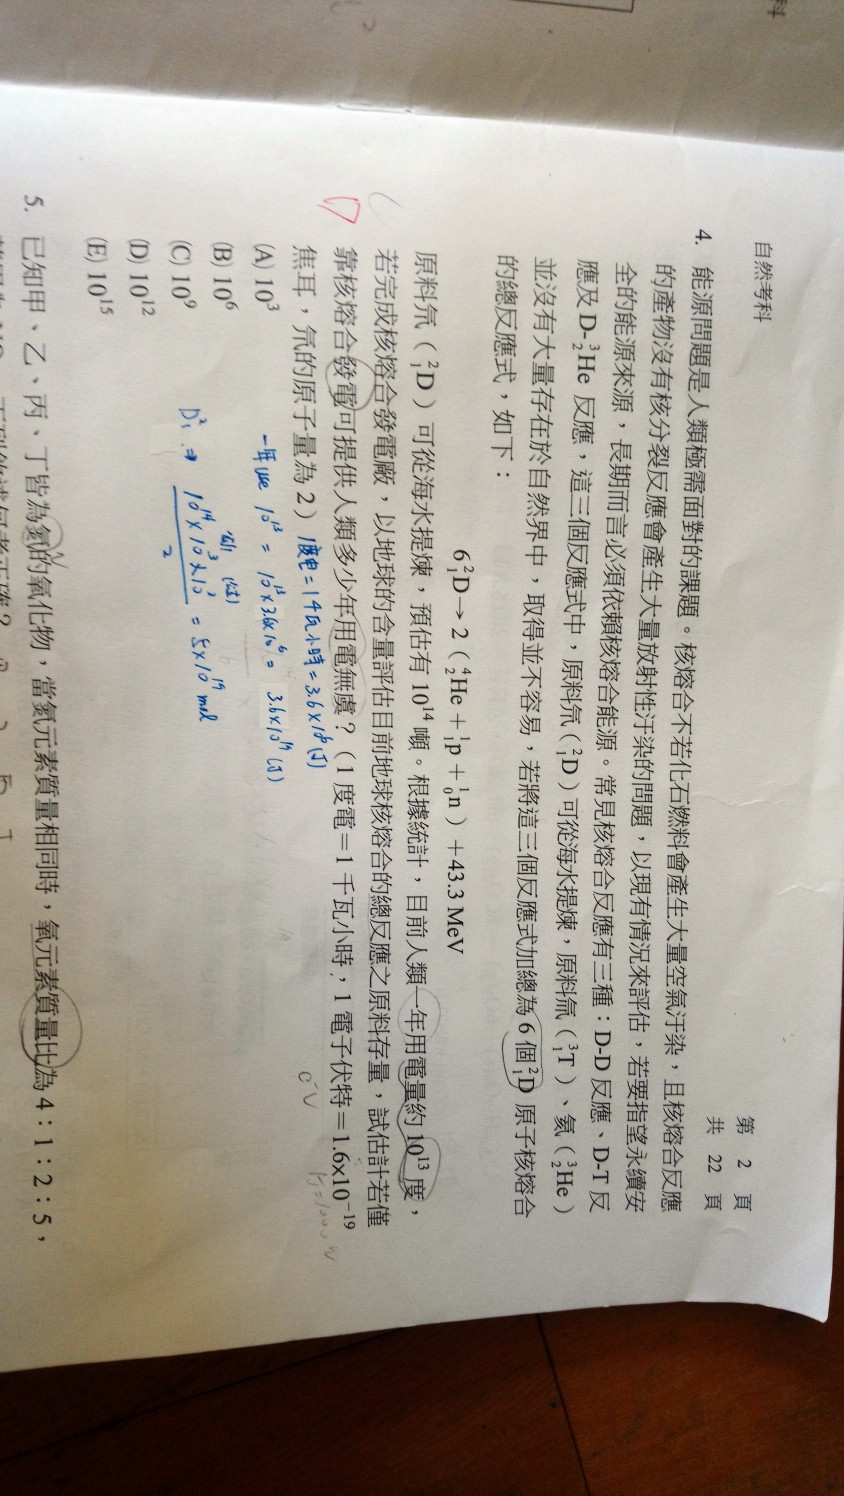 科
自然考科
第 2 頁
共 22 頁
4. 能源問題是人類極需面對的課題。核熔合不若化石燃料會產生大量空氣汙染，且核熔合反應
的產物沒有核分裂反應會產生大量放射性汙染的問題，以現有情況來評估，若要指望永續安
全的能源來源，長期而言必須依賴核熔合能源。常見核熔合反應有三種：D-D 反應、D-T 反
應及 D-³₂He 反應，這三個反應式中，原料氘（²₁D）可從海水提煉，原料氚（³₁T）、氦（³₂He）
並沒有大量存在於自然界中，取得並不容易，若將這三個反應式加總為 6 個 ²₁D 原子核熔合
的總反應式，如下：
6 ²₁D → 2（⁴₂He + ¹₁p + ¹₀n）+ 43.3 MeV
原料氘（²₁D）可從海水提煉，預估有 10¹⁴ 噸。根據統計，目前人類一年用電量約 10¹³ 度，
若完成核熔合發電廠，以地球的含量評估目前地球核熔合的總反應之原料存量，試估計若僅
靠核熔合發電可提供人類多少年用電無虞？（1 度電＝1 千瓦小時，1 電子伏特＝1.6x10⁻¹⁹
焦耳，氘的原子量為 2）
1度電=1千瓦小時=3.6×10⁶(J)
e⁻V
(A) 10³
一年use 10¹³ = 10¹³×3.6×10⁶ = 3.6×10¹⁹(J)
(B) 10⁶
(C) 10⁹
D²₁ ⇒ 10¹⁴×10³×10³ / 2 = 5×10¹⁹ mol
(D) 10¹²
(E) 10¹⁵
5. 已知甲、乙、丙、丁皆為氮的氧化物，當氮元素質量相同時，氧元素質量比為 4：1：2：5，